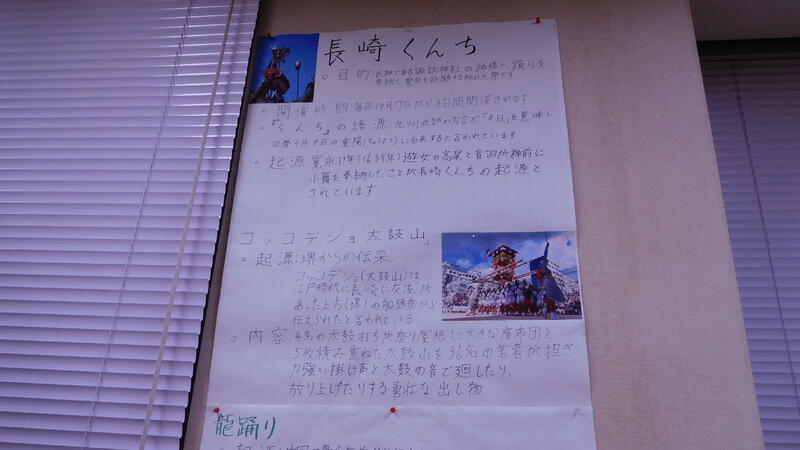 長崎くんち
○目的 氏神である諏訪神社の神様へ踊りを
奉納し豊作を祈願する秋の大祭です
○開催時期 毎年10月7日から3日間開催されます
○『くんち』の語源 九州北部の方言で「9日」を意味し
旧暦9月9日の重陽(ちょうよう)に由来すると言われています
○起源 寛永11年(1634年)遊女の高尾と音羽が神前に
小舞を奉納したことが長崎くんちの起源と
されています
コッコデショ「太鼓山」
○起源:堺からの伝来
コッコデショ(太鼓山)は
江戸時代に長崎に交流が
あった上方(堺)の船頭衆から
伝えられたと言われている
○内容:4名の太鼓打ちが座り屋根に大きな座布団を
5枚積み重ねた太鼓山を36名の若者が担ぎ
力強い掛け声と太鼓の音で廻したり、
放り上げたりする勇壮な出し物
龍踊り